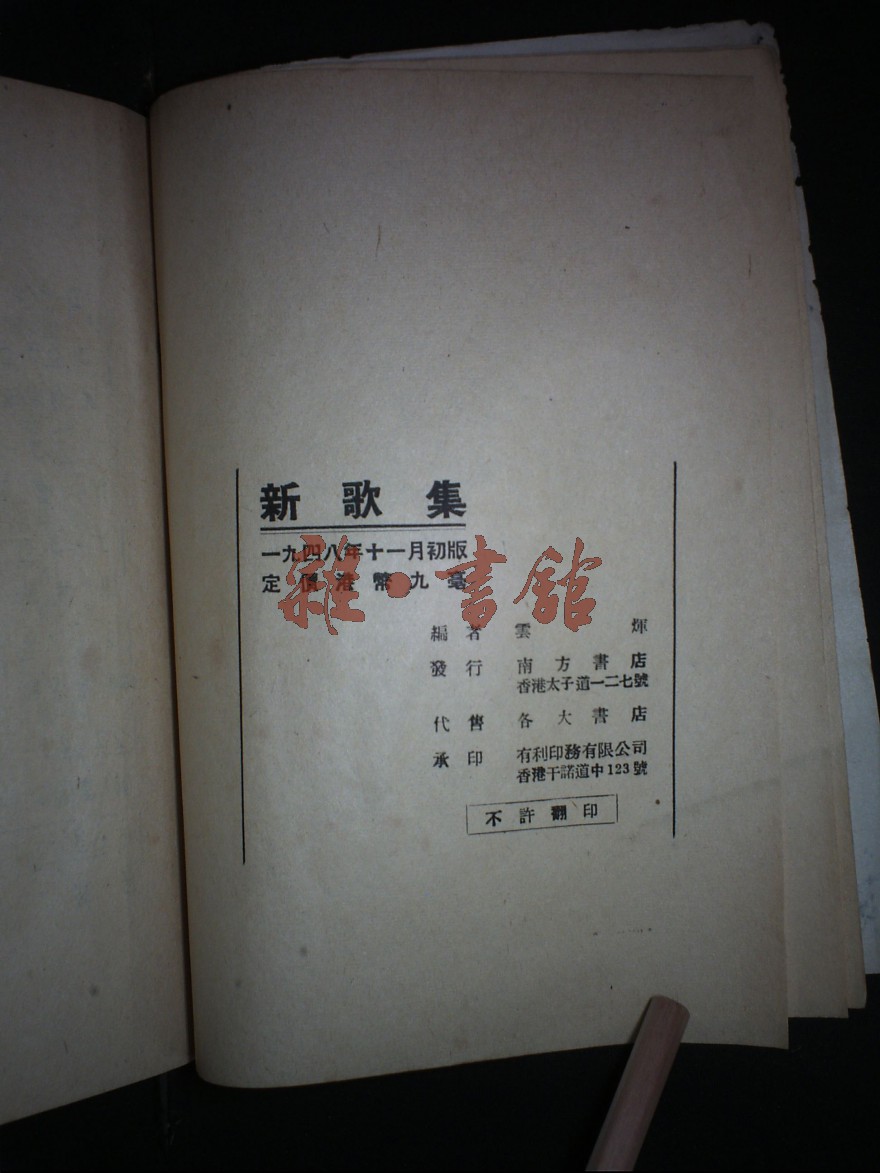 新歌集
一九四八年十一月初版
定價港幣九毫
雜·書館
編者 雲輝
發行 南方書店
香港太子道一二七號
代售 各大書店
承印 有利印務有限公司
香港干諾道中123號
不許翻印